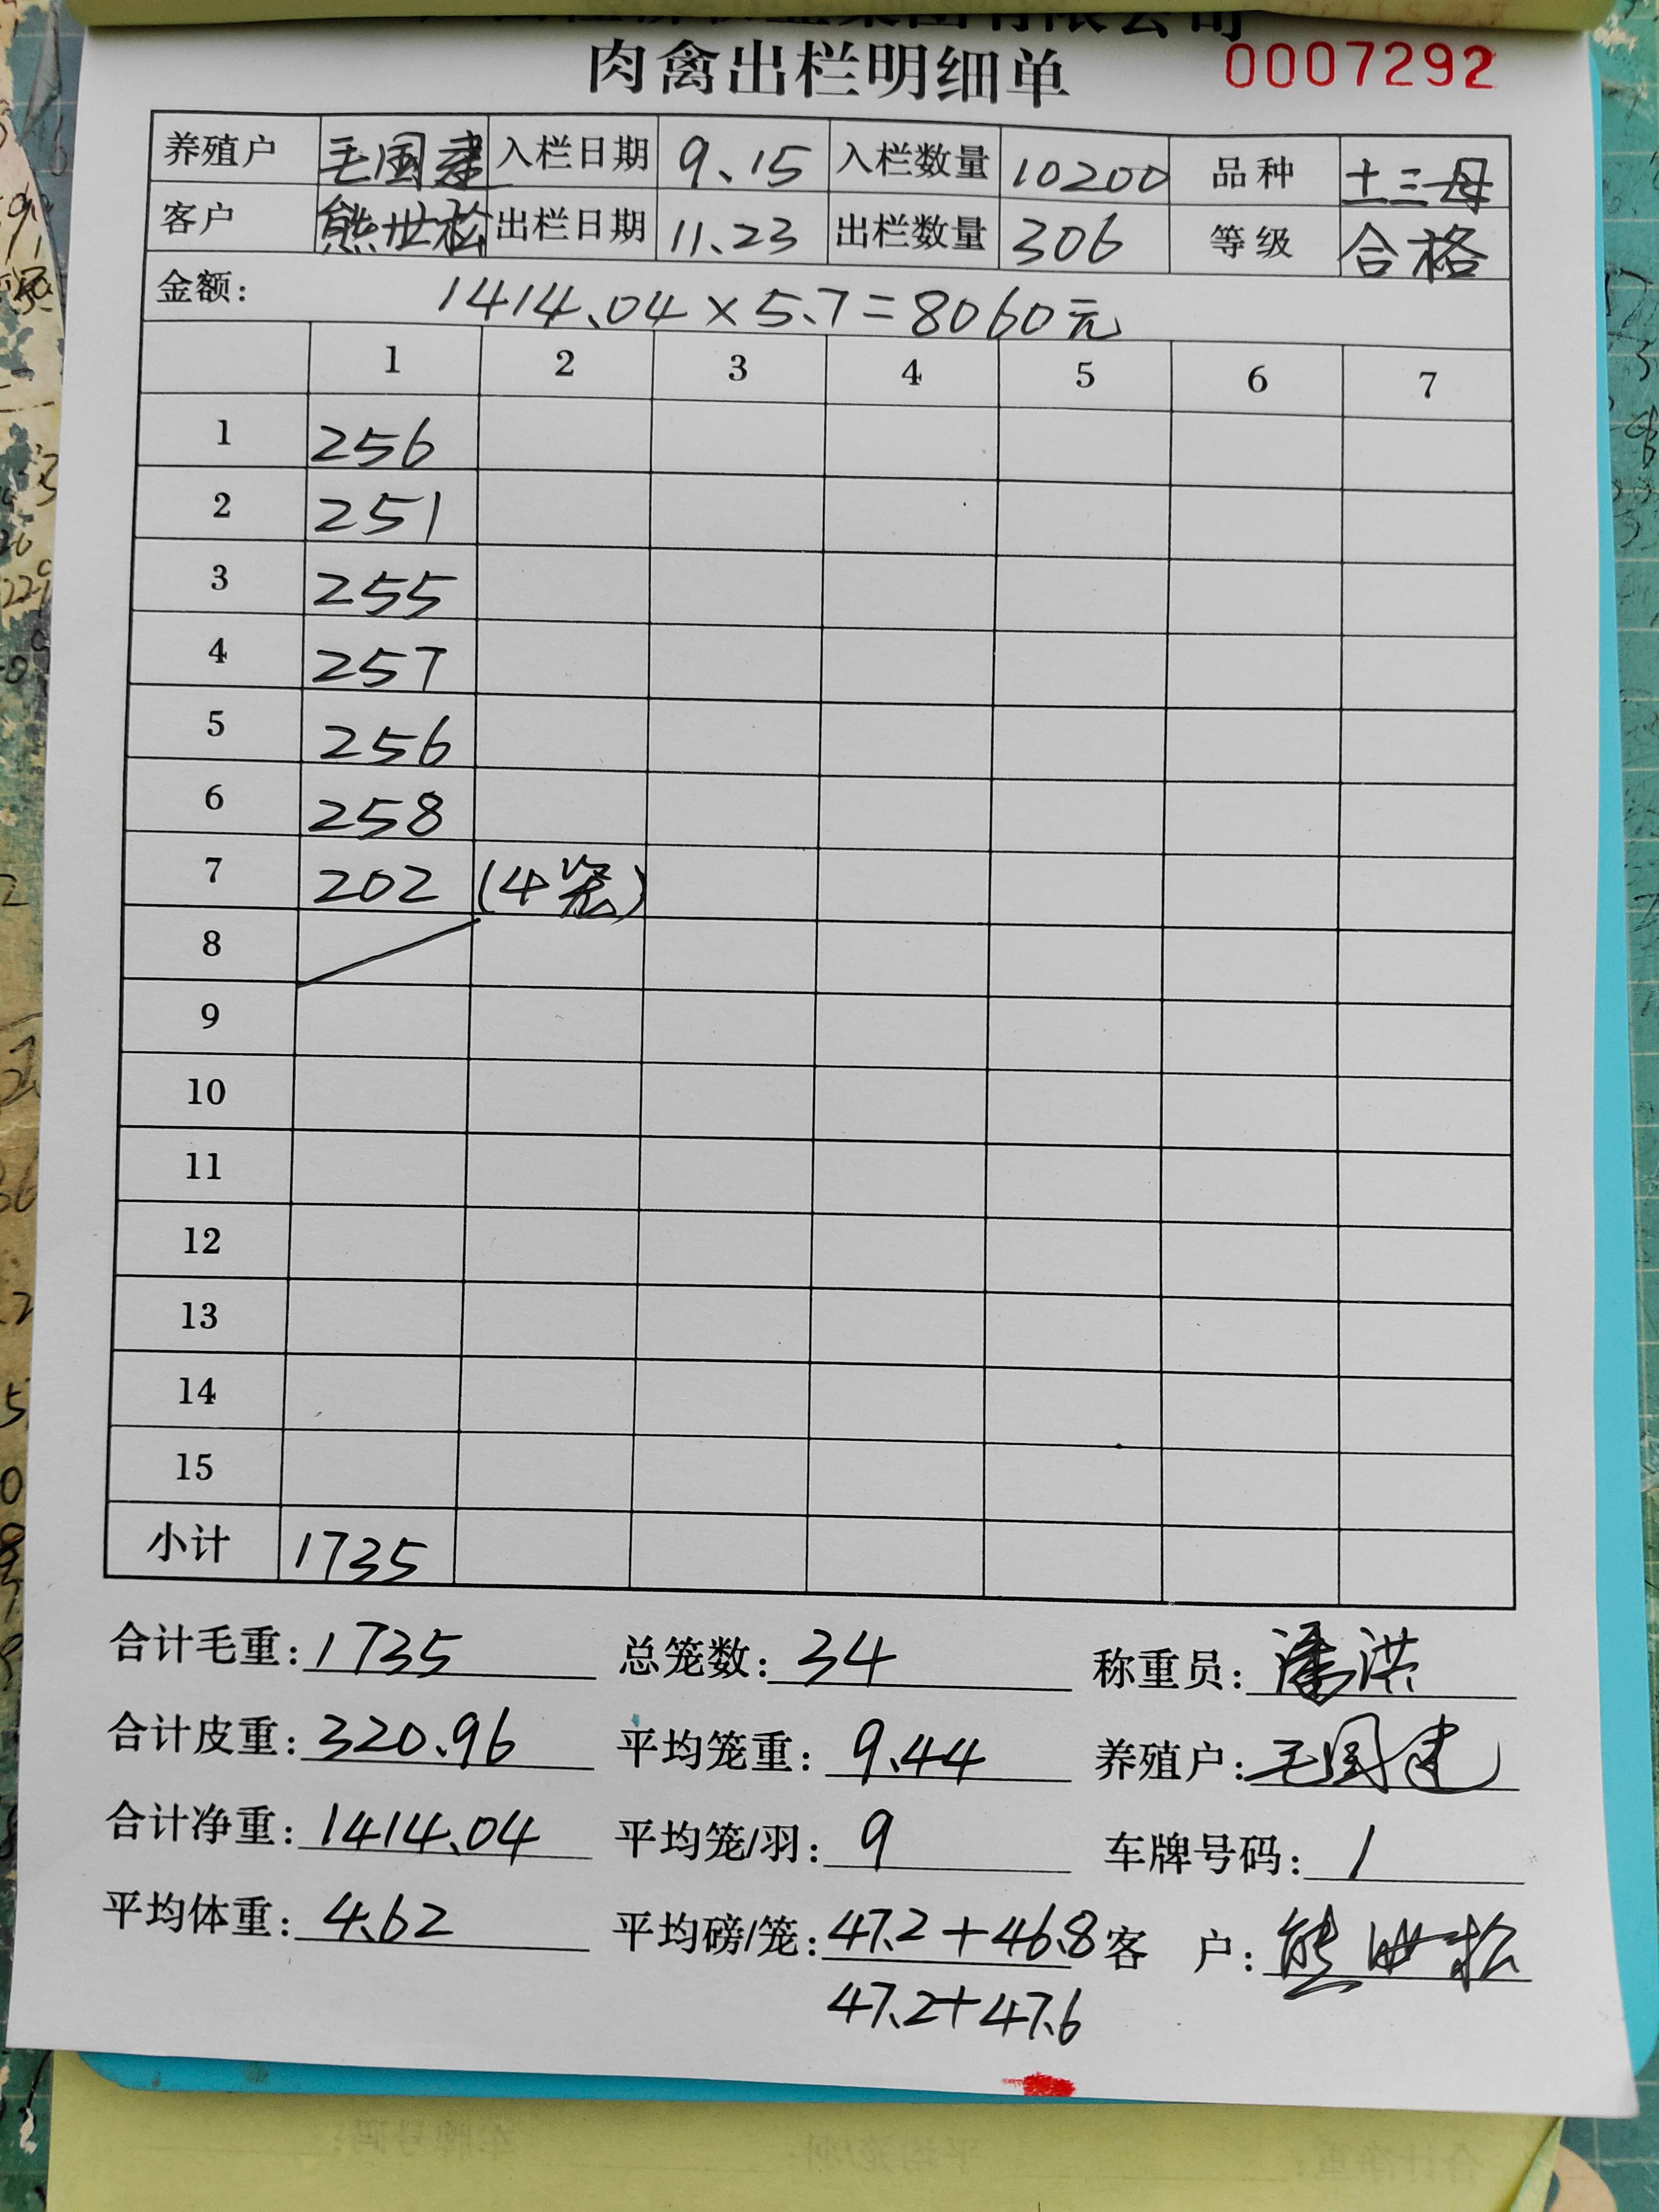 集团有限公司
肉禽出栏明细单 0007292
养殖户 毛国建 入栏日期 9.15 入栏数量 10200 品种 土三母
客户 熊世松 出栏日期 11.23 出栏数量 306 等级 合格
金额: 1414.04×5.7=8060元
1 2 3 4 5 6 7
1 256
2 251
3 255
4 257
5 256
6 258
7 202 (4笼)
8
9
10
11
12
13
14
15
小计 1735
合计毛重: 1735 总笼数: 34 称重员: 潘洪
合计皮重: 320.96 平均笼重: 9.44 养殖户: 毛国建
合计净重: 1414.04 平均笼/羽: 9 车牌号码: 1
平均体重: 4.62 平均磅/笼: 47.2+46.8 客 户: 熊世松
47.2+47.6